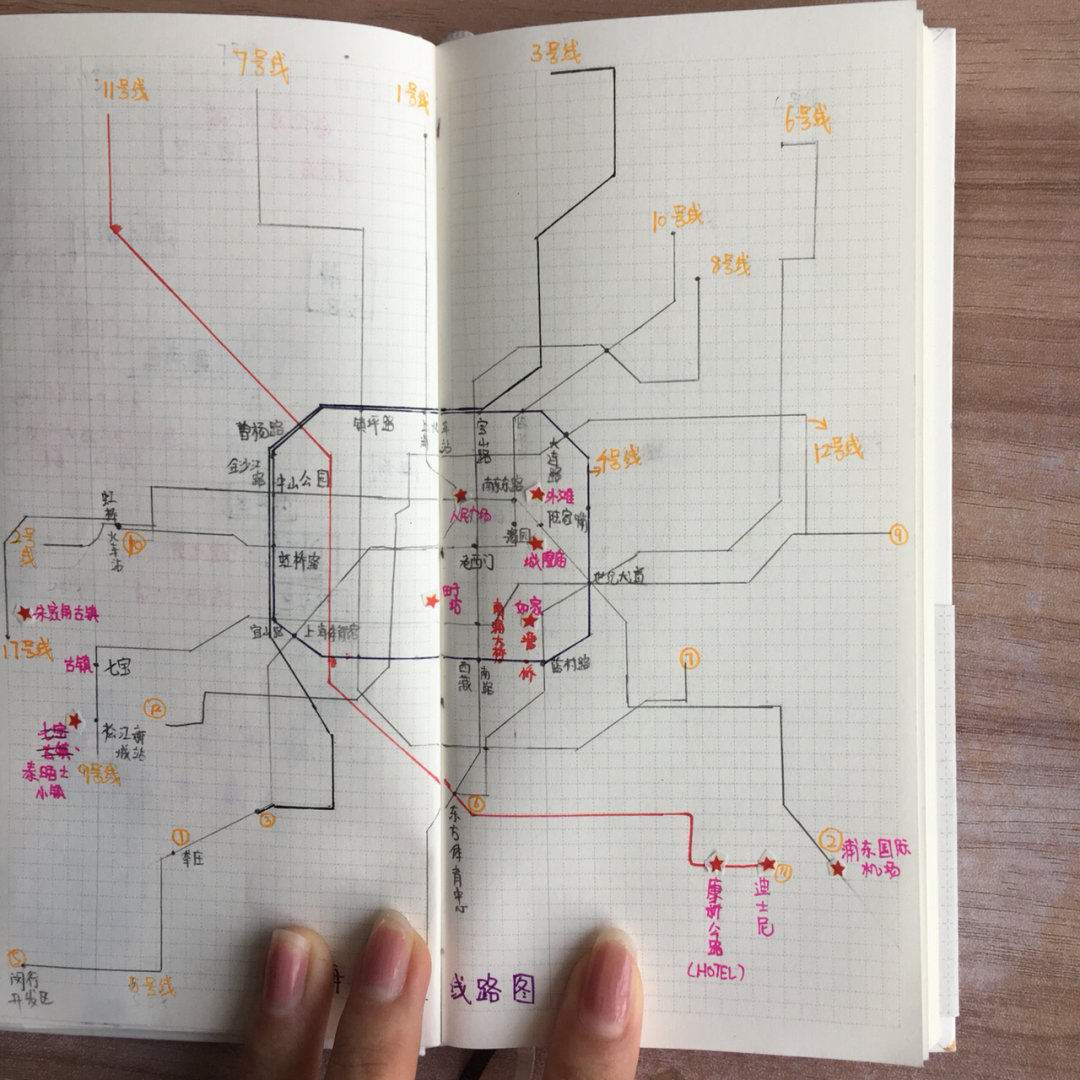 11号线
7号线
1号线
3号线
6号线
10号线
8号线
12号线
4号线
曹杨路
镇坪路
宝山路
大连路
金沙江路
中山公园
南京东路
外滩
人民广场
陆家嘴
豫园
城隍庙
老西门
虹桥火车站
2号线
10
虹桥路
世纪大道
9
朱家角古镇
17号线
田子坊
如家
塘桥
南浦大桥
宜山路
上海体育馆
蓝村路
西藏南路
7
古镇
七宝
12
松江新城站
七宝古镇、
泰晤士小镇
9号线
6
3
1
莘庄
东方体育中心
2
浦东国际机场
11
康新公路
(HOTEL)
迪士尼
5
闵行开发区
5号线
线路图